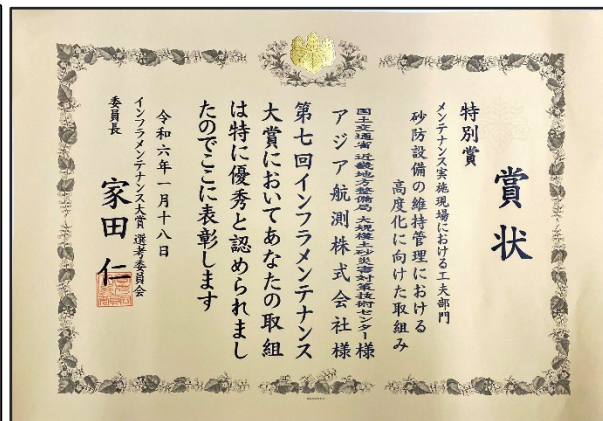 賞状
特別賞
メンテナンス実施現場における工夫部門
砂防設備の維持管理における
高度化に向けた取組み
国土交通省 近畿地方整備局 大規模土砂災害対策技術センター様
アジア航測株式会社様
第七回インフラメンテナンス
大賞においてあなたの取組
は特に優秀と認められまし
たのでここに表彰します
令和六年一月十八日
インフラメンテナンス大賞 選考委員会
委員長 家田 仁